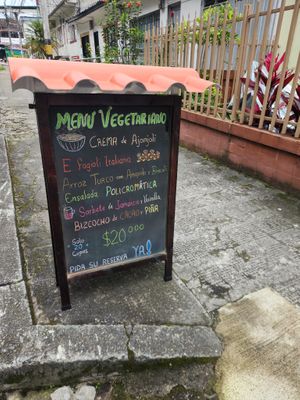 MENU VEGETARIANO
CREMA de Ajonjolí
E fagoli Italiana
Arroz Turco con Almendra y Brocoli
Ensalada POLICROMÁTICA
Sorbete de Jamaica y Vainilla
BIZCOCHO DE CACAO, PIÑA
Solo 20 Cupos
$20000
PIDA SU RESERVA YA!